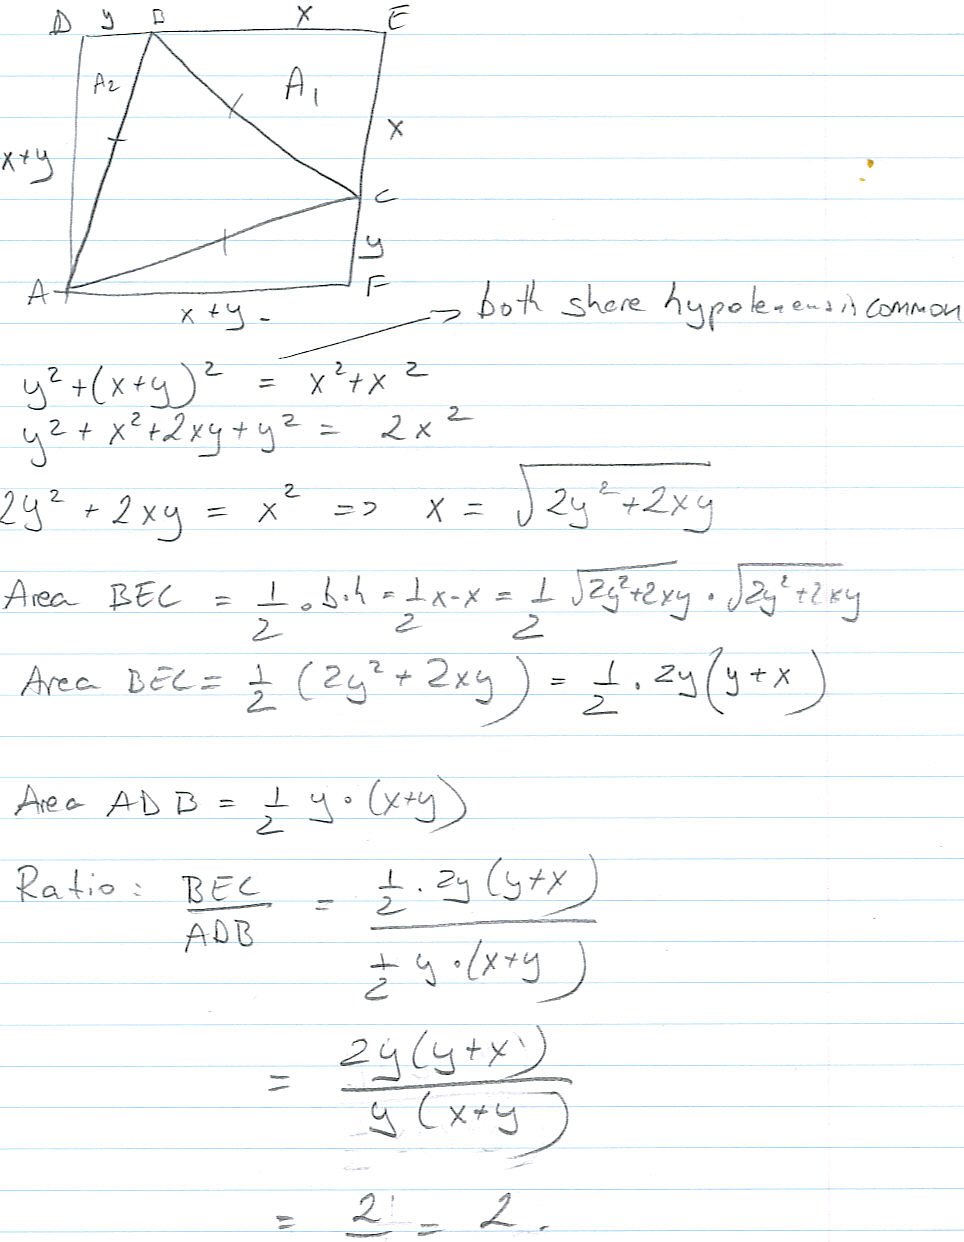 D y B x E
A2 A1
x+y x
C
y
A F
x+y
→ both share hypotenensis common
y²+(x+y)² = x²+x²
y²+x²+2xy+y² = 2x²
2y²+2xy = x² => x = √(2y²+2xy)
Area BEC = 1/2 · b·h = 1/2 x·x = 1/2 √(2y²+2xy) · √(2y²+2xy)
Area BEC = 1/2 (2y²+2xy) = 1/2 · 2y(y+x)
Area ADB = 1/2 y·(x+y)
Ratio: BEC/ADB = (1/2 · 2y(y+x))/(1/2 y·(x+y))
= 2y(y+x)/y(x+y)
= 2 = 2.